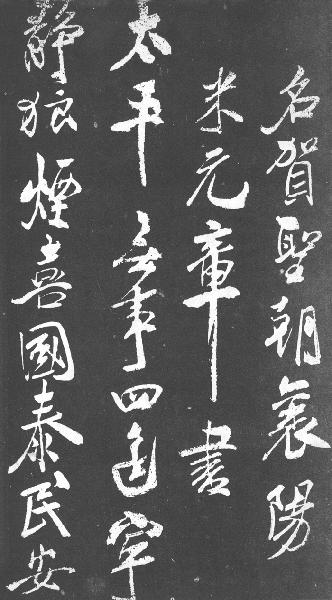 名賀聖朝襄陽
米元章書
太平無事四邊寧
静狼煙喜國泰民安